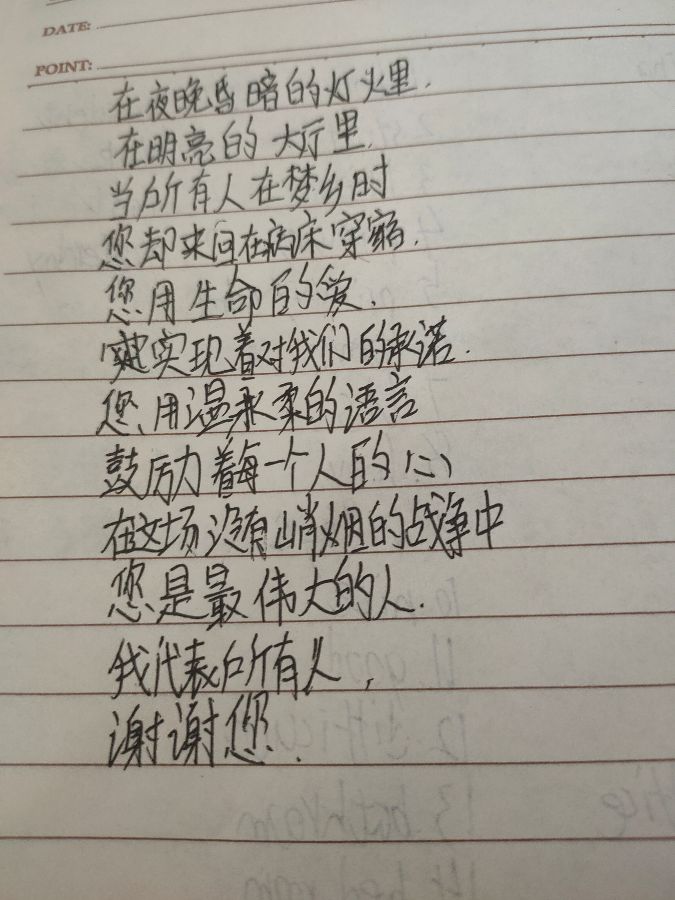 DATE:
POINT:
在夜晚昏暗的灯火里.
在明亮的大厅里.
当所有人在梦乡时
您却来回在病床穿梭.
您用生命的爱.
实现着对我们的承诺.
您用温柔的语言
鼓励着每一个人的心
在这场没有硝烟的战争中
您是最伟大的人.
我代表所有人,
谢谢您.